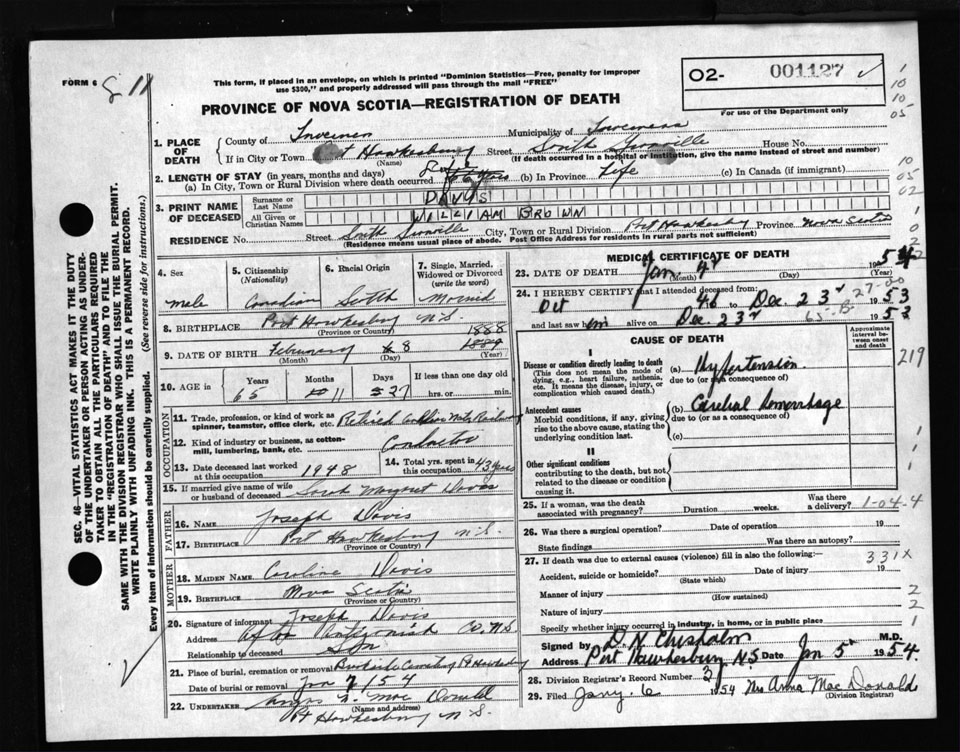 FORM 6
11
This form, if placed in an envelope, on which is printed "Dominion Statistics—Free, penalty for improper
use $300," and properly addressed will pass through the mail "FREE"
O2- 001127 ✓
For use of the Department only
PROVINCE OF NOVA SCOTIA—REGISTRATION OF DEATH
1. PLACE OF DEATH
County of Inverness Municipality of Inverness
If in City or Town Pt Hawkesbury Street South House No.
(Name) (If death occurred in a hospital or institution, give the name instead of street and number)
2. LENGTH OF STAY (in years, months and days)
(a) In City, Town or Rural Division where death occurred (b) In Province Life (c) In Canada (if immigrant)
3. PRINT NAME OF DECEASED
Surname or Last Name DAVIS
All Given or Christian Names WILLIAM BROWN
RESIDENCE No. Street South City, Town or Rural Division Pt Hawkesbury Province Nova Scotia
(Residence means usual place of abode. Post Office Address for residents in rural parts not sufficient)
4. Sex
male
5. Citizenship (Nationality)
Canadian
6. Racial Origin
Scotch
7. Single, Married, Widowed or Divorced (write the word)
Married
8. BIRTHPLACE Port Hawkesbury N.S.
(Province or Country)
1888
9. DATE OF BIRTH February 8 1889
(Month) (Day) (Year)
10. AGE in Years Months Days If less than one day
65 11 27 hrs. or min.
OCCUPATION
11. Trade, profession, or kind of work as spinner, teamster, office clerk, etc. Retired Railway
12. Kind of industry or business, as cotton-mill, lumbering, bank, etc. Conductor
13. Date deceased last worked at this occupation 1948
14. Total yrs. spent in this occupation 43 years
15. If married give name of wife or husband of deceased Sarah Margaret Davis
FATHER
16. NAME Joseph Davis
17. BIRTHPLACE Pt Hawkesbury N.S.
(Province or Country)
MOTHER
18. MAIDEN NAME Caroline Davis
19. BIRTHPLACE Nova Scotia
(Province or Country)
20. Signature of informant Joseph Davis
Address Antigonish Co. N.S.
Relationship to deceased Son
21. Place of burial, cremation or removal Cemetery Pt Hawkesbury
Date of burial or removal Jan 7 / 54
22. UNDERTAKER Angus Mac Donald
(Name and address)
Pt Hawkesbury N.S.
MEDICAL CERTIFICATE OF DEATH
23. DATE OF DEATH Jan. 4 1954
(Month) (Day) (Year)
24. I HEREBY CERTIFY that I attended deceased from
Oct 46 to Dec. 23 1953
and last saw him alive on Dec. 23 1953
27-00
CAUSE OF DEATH
Approximate interval between onset and death
I
Disease or condition directly leading to death
(This does not mean the mode of dying, e.g., heart failure, asthenia, etc. It means the disease, injury, or complication which caused death.)
(a) Hypertension
due to (or as a consequence of)
Antecedent causes
Morbid conditions, if any, giving rise to the above cause, stating the underlying condition last.
(b) Cerebral Hemorrhage
due to (or as a consequence of)
(c)
II
Other significant conditions
contributing to the death, but not related to the disease or condition causing it.
219
25. If a woman, was the death associated with pregnancy? Duration weeks. Was there a delivery?
1-04-4
26. Was there a surgical operation? Date of operation 19
State findings Was there an autopsy?
27. If death was due to external causes (violence) fill in also the following:—
331X
Accident, suicide or homicide? Date of injury 19
(State which)
Manner of injury
(How sustained)
Nature of injury
Specify whether injury occurred in industry, in home, or in public place
Signed by D. N. Chisholm M.D.
Address Port Hawkesbury N.S. Date Jan 5 1954
28. Division Registrar's Record Number 3
29. Filed Jany. 6 1954 Mrs Anna MacDonald
(Division Registrar)
SEC. 46—VITAL STATISTICS ACT MAKES IT THE DUTY
OF THE UNDERTAKER OR PERSON ACTING AS UNDER-
TAKER TO OBTAIN ALL THE PARTICULARS REQUIRED
IN THE "REGISTRATION OF DEATH" AND TO FILE THE
SAME WITH THE DIVISION REGISTRAR WHO SHALL ISSUE THE BURIAL PERMIT.
WRITE PLAINLY WITH UNFADING INK. THIS IS A PERMANENT RECORD.
Every item of information should be carefully supplied. (See reverse side for instructions.)